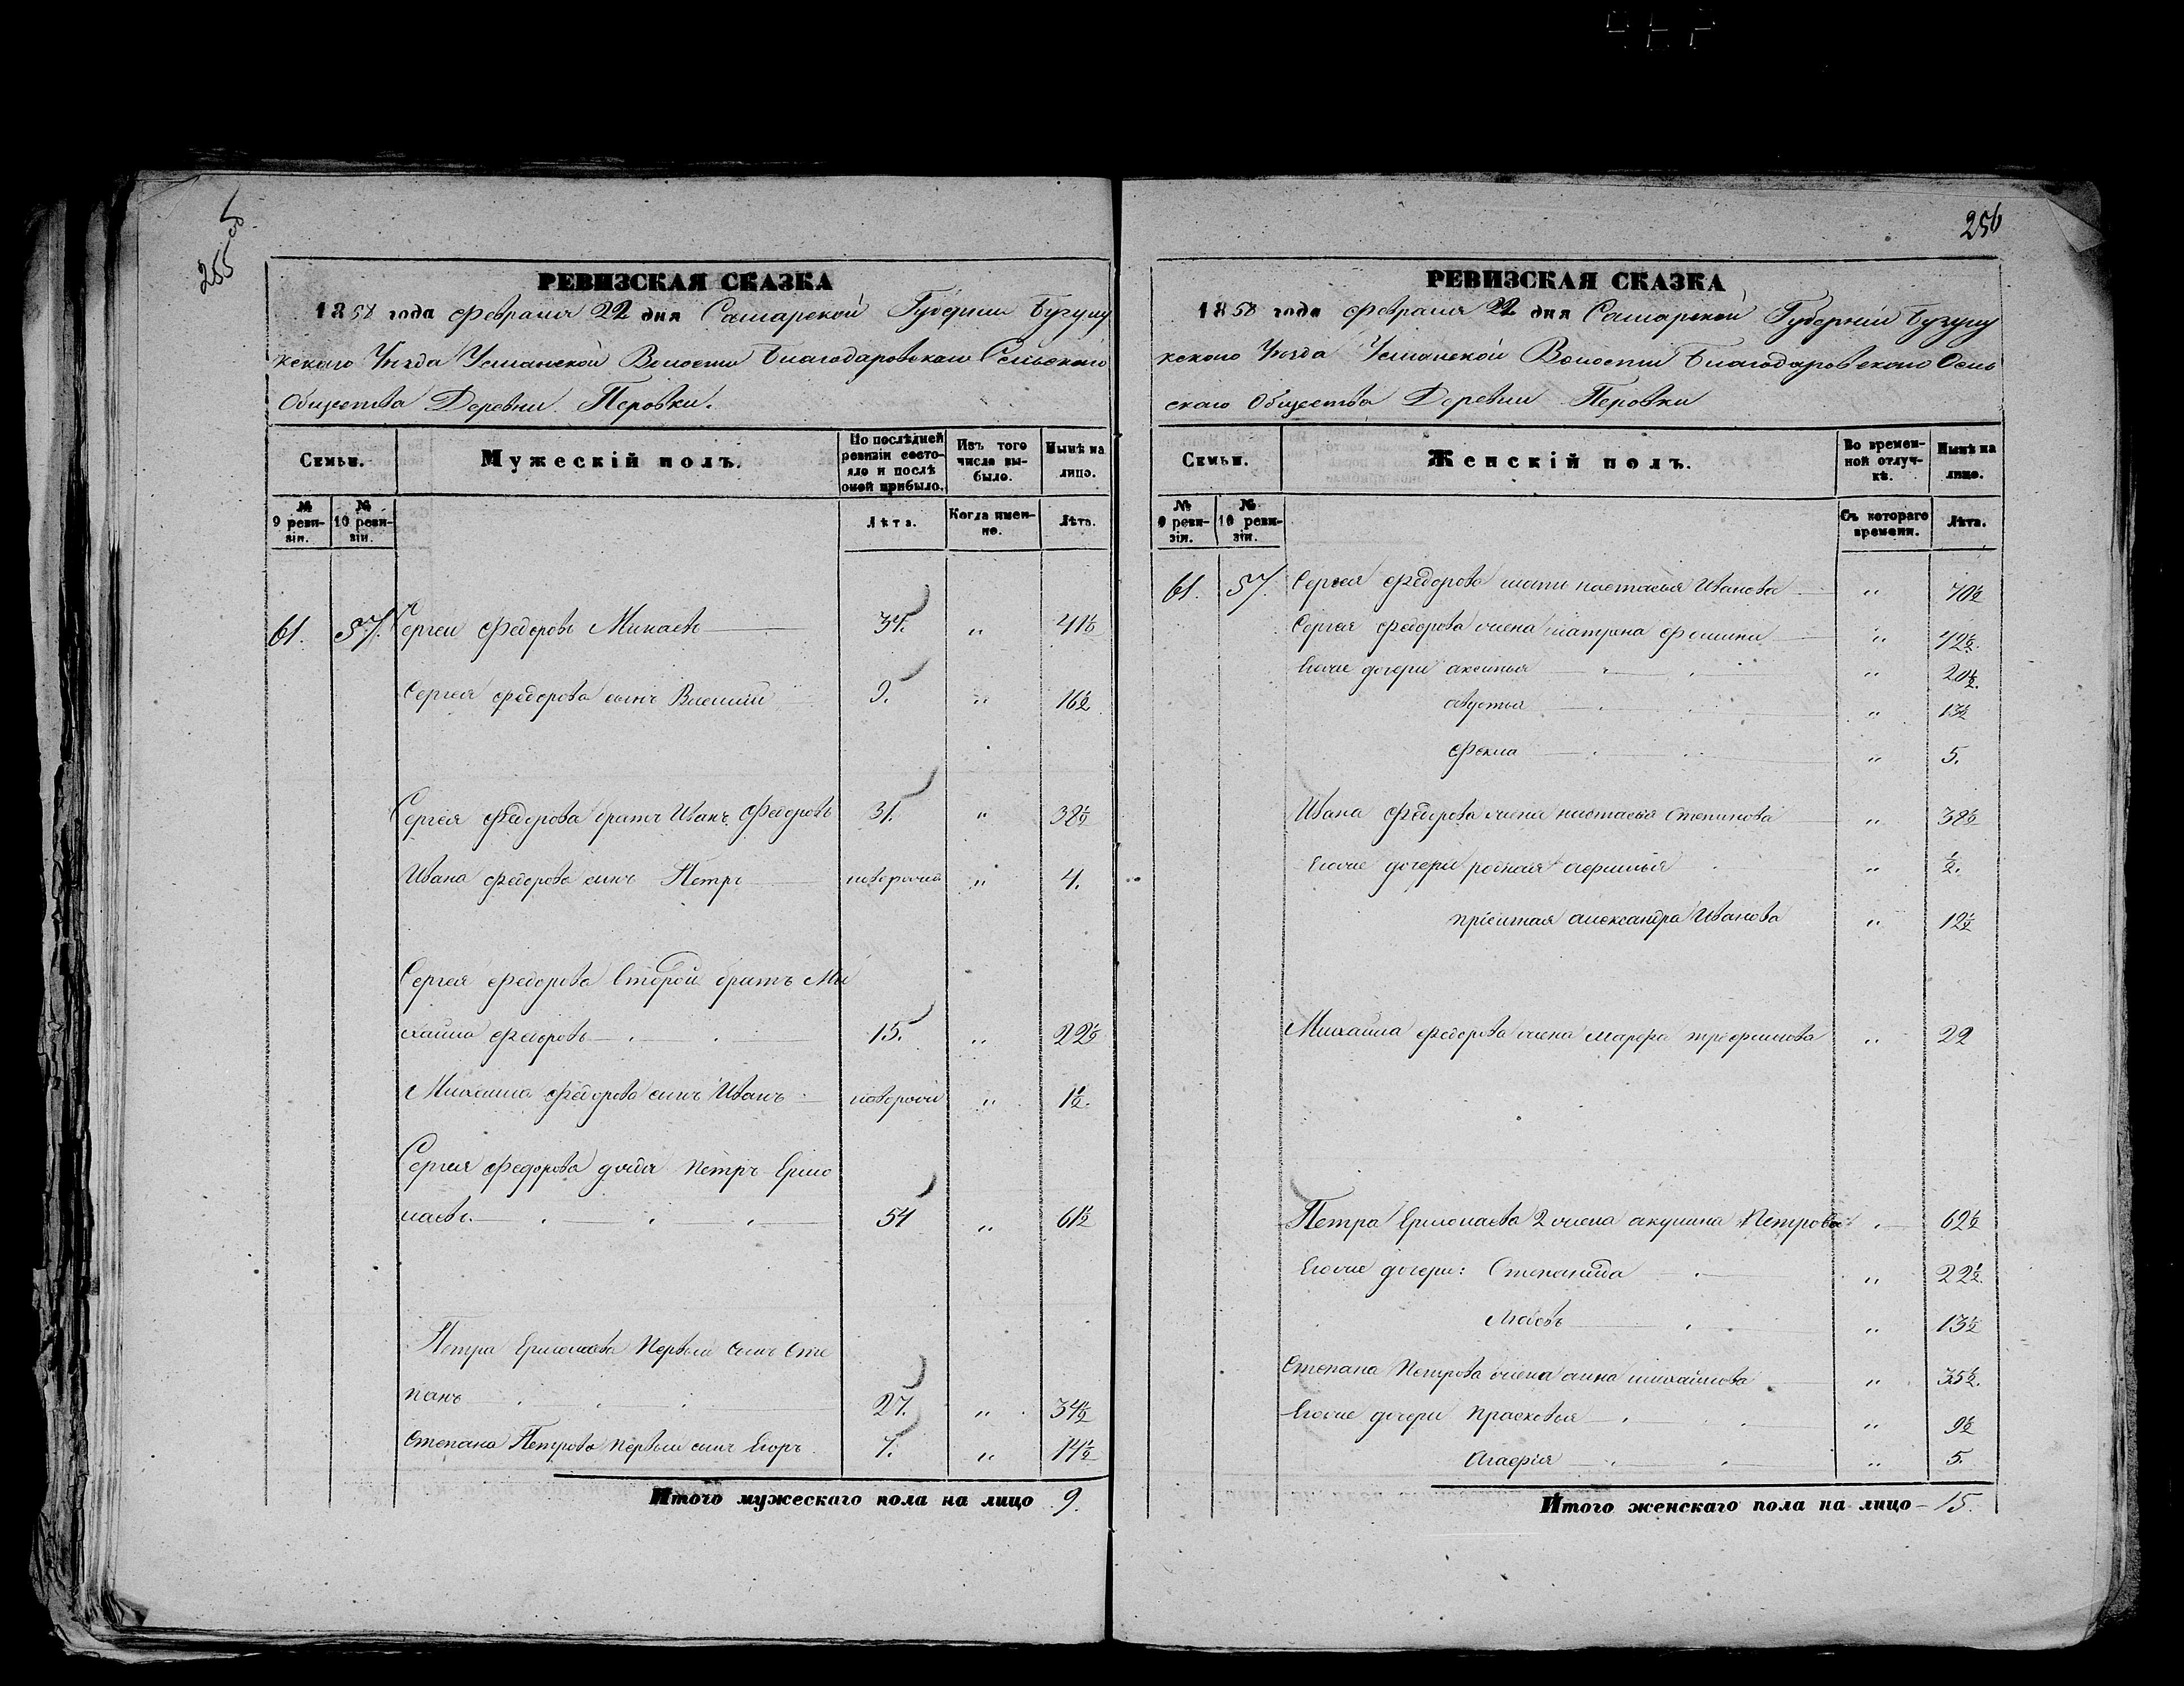 255 об
РЕВИЗСКАЯ СКАЗКА
1858 года февраля 22 дня Самарской Губернии Бузулу
кскаго Уезда Усманской Волости Благодаровскаго Сельскаго
Общества Деревни Перовки.
Семьи.
Мужескій полъ.
По послѣдней ревизіи состояло и послѣ оной прибыло.
Изъ того числа выбыло.
Нынѣ на лицо.
№ 9 ревизіи.
№ 10 ревизіи.
Лѣта.
Когда именно.
Лѣта.
61. 57. Сергеи Федоровъ Минаевъ 34. „ 41½
Сергея федорова сынъ Василий 9. „ 16½
Сергея Федорова братъ Иванъ Федоровъ 31. „ 38½
Ивана федорова сынъ Петръ новорожд „ 4.
Сергея федорова второй братъ Ми
хайла федоровъ 15. „ 22½
Михайла федорова сынъ Иванъ новорожд „ 1½.
Сергея федорова дядя Петръ Ермо
лаевъ. 54 „ 61½
Петра Ермолаева Первый сынъ Сте
панъ 27. „ 34½
Степана Петрова первый сынъ Егоръ 7. „ 14½
Итого мужескаго пола на лицо 9.
256
РЕВИЗСКАЯ СКАЗКА
1858 года февраля 22 дня Самарской Губерніи Бузулу
кскаго Уезда Усманской Волости Благодаровскаго Сель
скаго Общества Деревни Перовки
Семьи.
Женскій полъ.
Во временной отлучкѣ.
Нынѣ на лицо.
№ 9 ревизіи.
№ 10 ревизіи.
Съ котораго времени.
Лѣта.
61. 57. Сергея Федорова мать настасья Иванова „ 70½
Сергея федорова жена матрена Фомина „ 42½.
Егоже дочери аксинья „ 20½.
авдотья „ 13½
Фекла „ 5.
Ивана Федорова жена настасья Степанова „ 38½
Егоже дочери родная афимья „ ½.
пріемная александра Иванова „ 12½
Михайла федорова жена марфа трофимова „ 22
Петра Ермолаева 2 жена акулина Петрова „ 62½
Егоже дочери: Степанида „ 22½.
Любовь „ 13½
Степана Петрова жена анна михайлова „ 35½.
Егоже дочери Прасковья „ 9½
Агафія „ 5.
Итого женскаго пола на лицо 15.